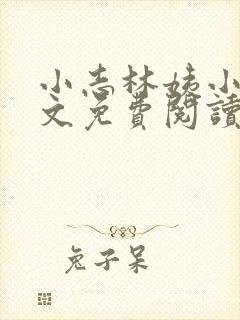 小志林姨小
文免費閱讀
兔子呆